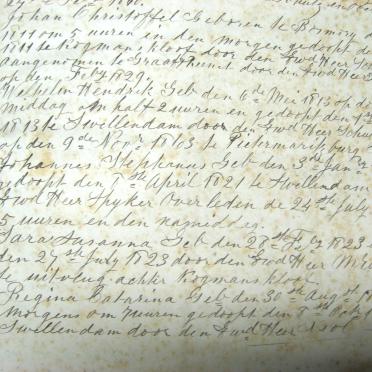 Johan Christoffel Geboren te Bosmory
1811 om 5 uuren en den morgen gedoopt de
1811 te Kogmans kloof door den Ewd Heer
aangenomen te Graaffrunet door den Ewd Heer
op hen Feby 1829.
Wilhelm Hendrik Geb den 6de Mei 1813 op de
Middag om halt 2 uuren en gedoopt den
1813 te Swellendam door den Ewd Heer Schu
op den 9de Novr 1863 te Pietermaritzburg
Johannes Stephanus Geb den 3de Jany
Gedoopt den 7ste April 1821 te Swellendam
Ewd Heer Spyker overleden de 24ste July
5 uuren en den nagmiddag.
Sara Susanna Geb den 28ste Feby 1823
den 27ste July 1823 door den Ewd Heer
te uitvlug achter Kogmans kloof
Regina Catarina Geb den 30ste Augst
Morgens om 7 uuren gedoopt den
Swellendam door den Ewd Heer